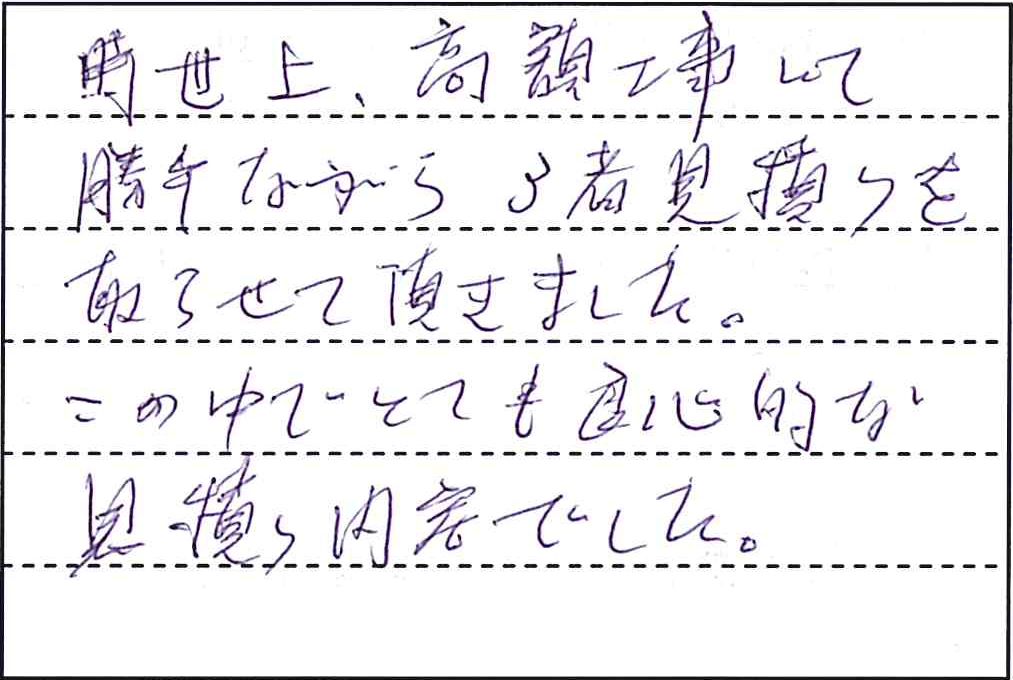 時世上、高額工事して
勝手ながら3者見積りを
取らせて頂きました。
この中でとても良心的な
見積り内容でした。